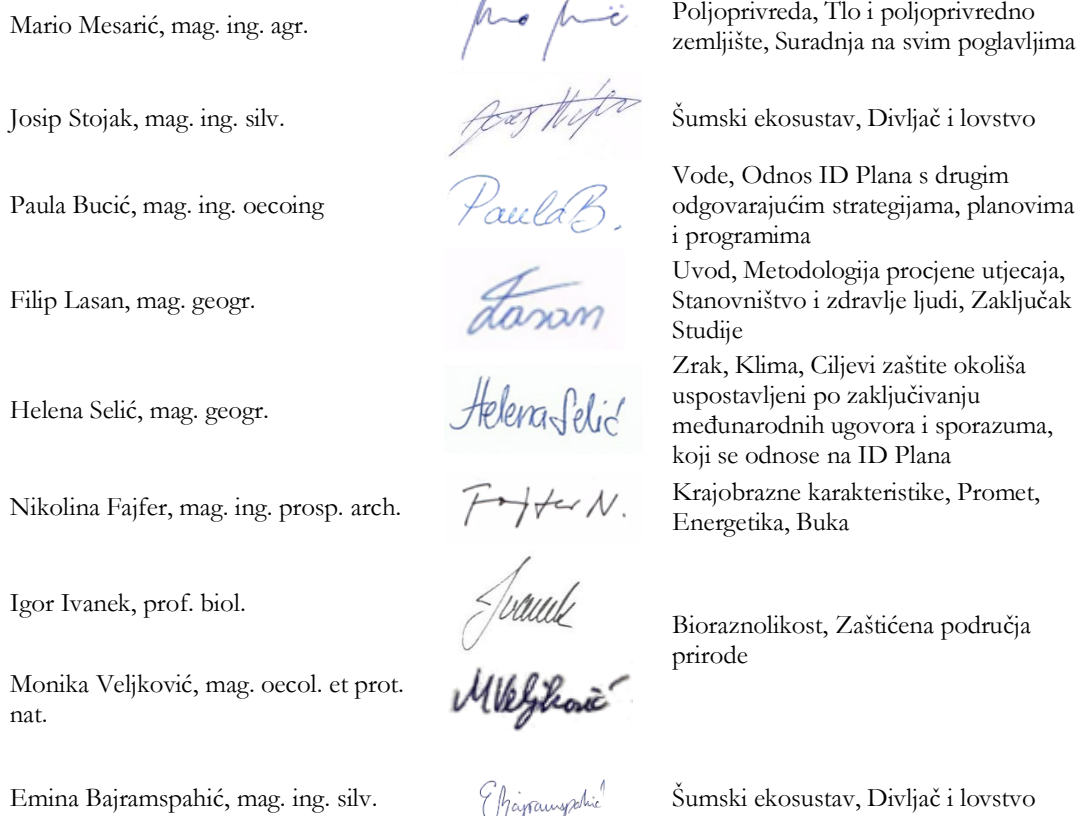 Mario Mesarić, mag. ing. agr.
Poljoprivreda, Tlo i poljoprivredno
zemljište, Suradnja na svim poglavljima
Josip Stojak, mag. ing. silv.
Šumski ekosustav, Divljač i lovstvo
Paula Bucić, mag. ing. oecoing
Paula B.
Vode, Odnos ID Plana s drugim
odgovarajućim strategijama, planovima
i programima
Filip Lasan, mag. geogr.
Lasan
Uvod, Metodologija procjene utjecaja,
Stanovništvo i zdravlje ljudi, Zaključak
Studije
Helena Selić, mag. geogr.
Helena Selić
Zrak, Klima, Ciljevi zaštite okoliša
uspostavljeni po zaključivanju
međunarodnih ugovora i sporazuma,
koji se odnose na ID Plana
Nikolina Fajfer, mag. ing. prosp. arch.
Fajfer N.
Krajobrazne karakteristike, Promet,
Energetika, Buka
Igor Ivanek, prof. biol.
Ivanek
Bioraznolikost, Zaštićena područja
prirode
Monika Veljković, mag. oecol. et prot.
nat.
MVeljković
Emina Bajramspahić, mag. ing. silv.
EBajramspahić
Šumski ekosustav, Divljač i lovstvo